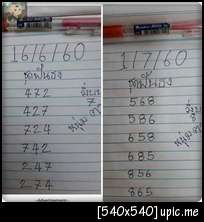 16/6/60
ชุดฟันธง
472
427
724
742
247
274
มีบน
7
หนุ่ม
1/7/60
ชุดฟันธง
568
586
658
685
856
865
[540x540] upic.me